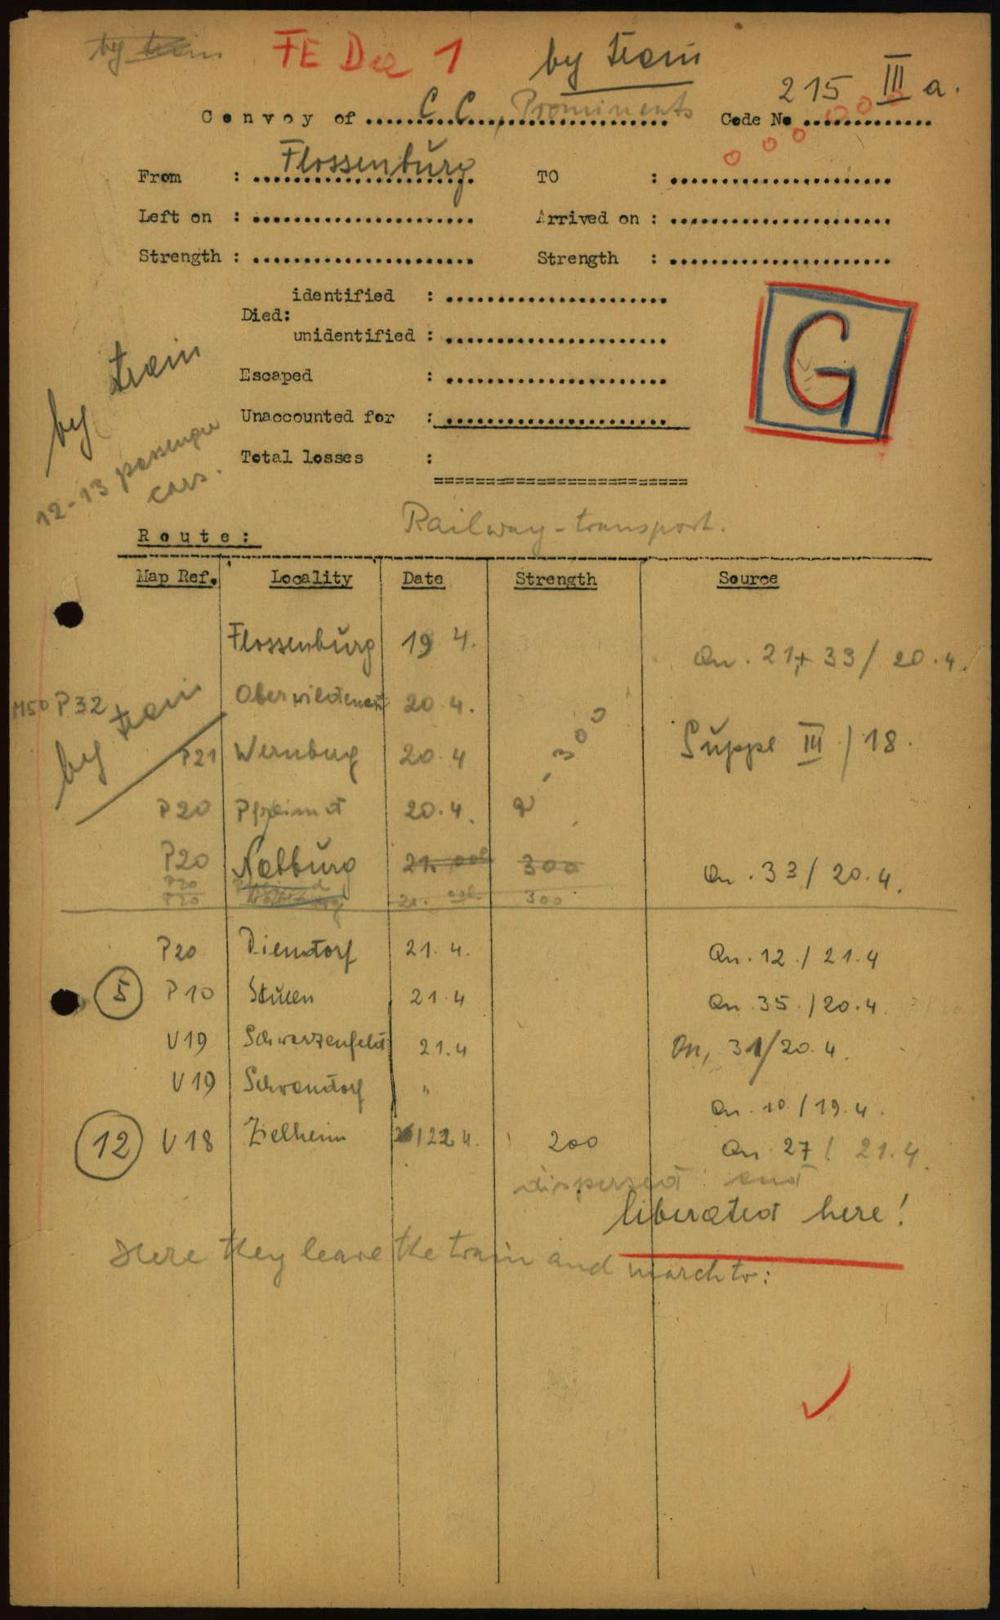 by train FE Dec 1 by train
215 III a.
Convoy of ...... C.C. Prominents ...... Code No ......
From : Flossenbürg TO : ......
Left on : ...... Arrived on : ......
Strength : ...... Strength : ......
identified : ......
Died:
unidentified : ......
G
Escaped : ......
by train
Unaccounted for : ......
12-13 passenger
cars.
Total losses :
Railway-transport.
Route:
Map Ref. Locality Date Strength Source
Flossenbürg 19 4. Qu. 21+33/20.4.
M50 P32 20.4.
by train
P21 Wernburg 20.4 300 Suppl III/18.
P20 Pfreimt 20.4.
P20 Nabburg 21. 300 Qu. 33/20.4.
P20
P20 21. 300
P20 Diendorf 21.4. Qu. 12./21.4
5 P10 Stulln 21.4 Qu. 35./20.4.
V19 Schwarzenfeld 21.4 Qu, 31/20.4.
V19 Schwandorf " Qu. 10./19.4.
12 V18 Zielheim 22 4. 200 Qu. 27/21.4.
dispersed and
liberated here!
Here they leave the train and march to: